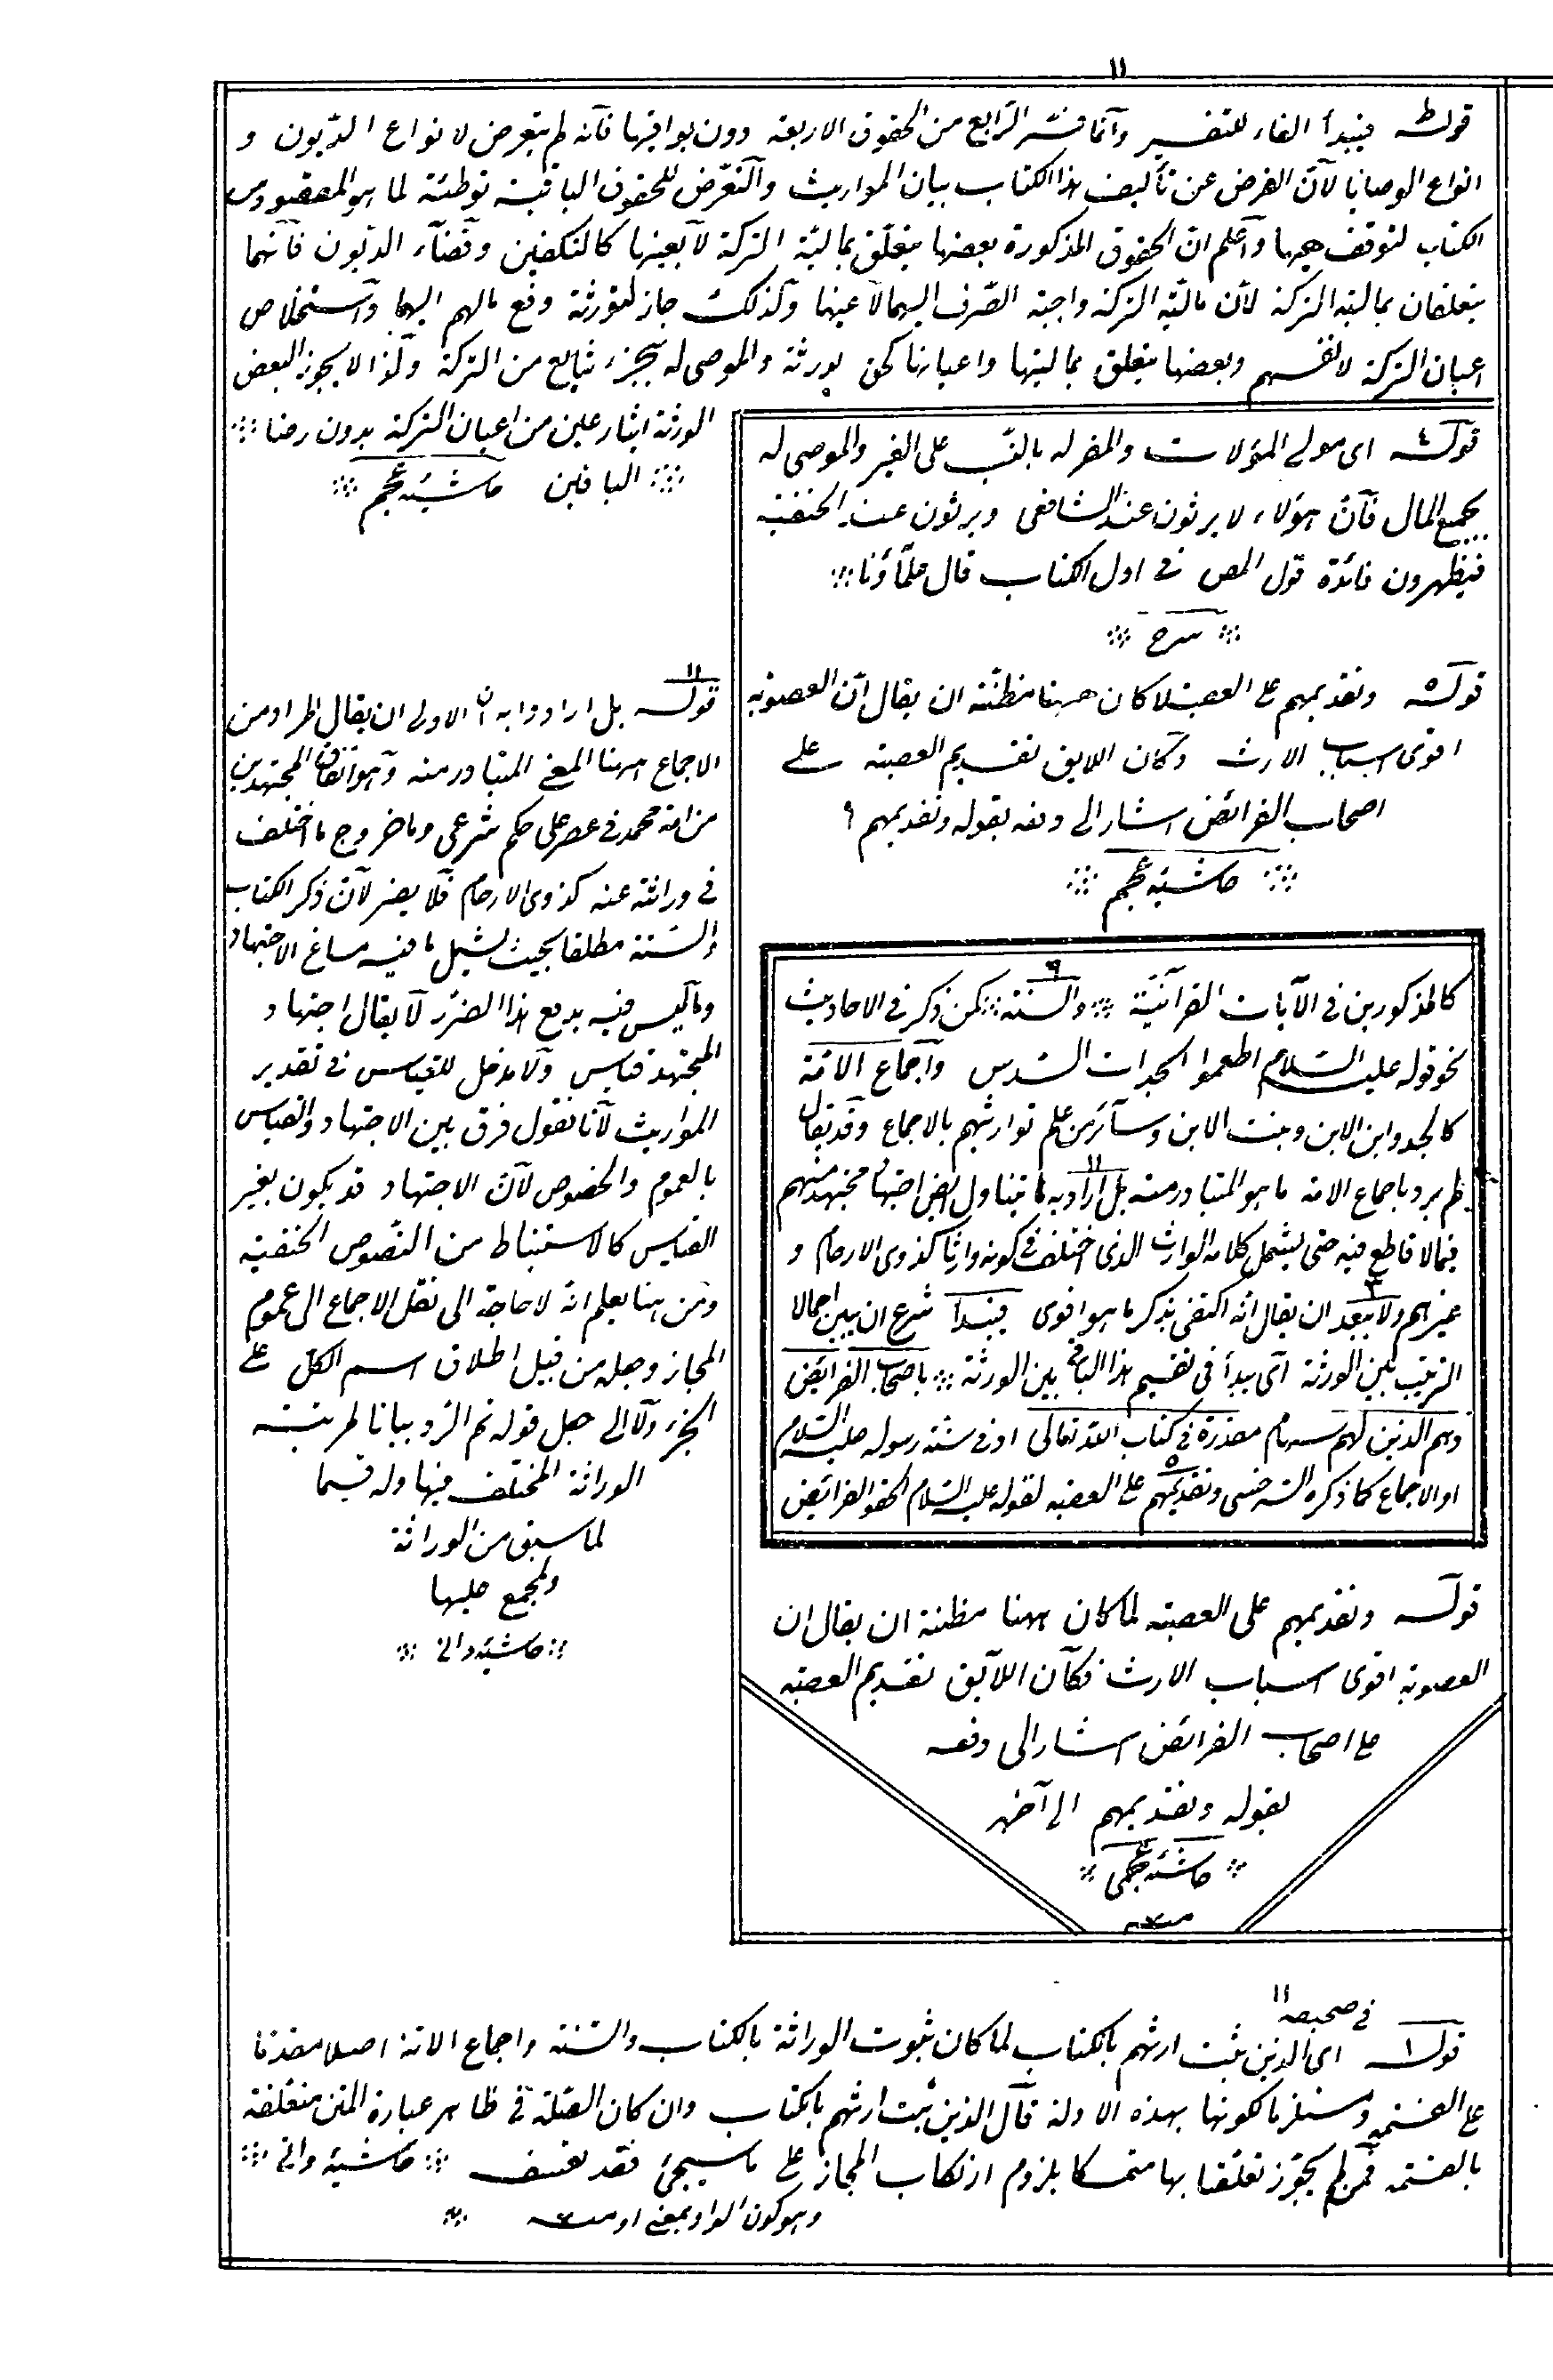 ١١
قوله فيبدأ الفاء للتفسير وانما فسّر الرّابع من الحقوق الاربعة دون بواقيها فانه لم يتعرض لانواع الدّيون و
انواع الوصايا لانّ الغرض عن تأليف هذا الكتاب بيان المواريث والتعرّض للحقوق الباقية توطئة لما هو المقصود من
الكتاب لتوقف عليها واعلم انّ الحقوق المذكورة بعضها يتعلّق بمالية التركة لا بعينها كالتكفين وقضاء الديون فانّهما
يتعلقان بمالية التركة لانّ مالية التركة واجبة الصّرف اليهما لا عينها ولذلك جاز للورثة دفع مالهم اليها واستخلاص
اعيان التركة لانفسهم وبعضها يتعلق بماليتها واعيانها كحق الورثة والموصى له بجزء شايع من التركة ولذا لا يجوز لبعض
الورثة ايثار عين من اعيان التركة بدون رضا
الباقين حاشيه عجم
قوله ٤ اى مولى المولات والمقر له بالنسب على الغير والموصى له
بجميع المال فانّ هؤلاء لا يرثون عند الشافعى ويرثون عند الحنفية
فيظهر فائدة قول المص فى اول الكتاب قال علماؤنا
شرح
قوله ٥ وتقديمهم على العصبة لما كان ههنا مظنّة ان يقال انّ العصوبة
اقوى اسباب الارث وكان اللايق تقديم العصبة على
اصحاب الفرائض اشار الى دفعه بقوله وتقديمهم
حاشيه عجم
كالمذكورين فى الآيات القرآنية والسنة كمن ذكر فى الاحاديث
نحو قوله عليه السّلام اطعموا الجدات السّدس واجماع الامّة
كالجد وابن الابن وبنت الابن وسائر من علم توارثهم بالاجماع وقد يقال
لم يرد باجماع الامة ما هو المتبادر منه بل اراد به ما يتناول ايضا اجتهاد مجتهد منهم
فيما لا قاطع فيه حتى يشمل كلامه الوارث الذى اختلف فى كونه وارثا كذوى الارحام و
غيرهم ولا يبعد ان يقال انّه اكتفى بذكر ما هو اقوى فيبدأ شرع ان يبين اجمالا
الترتيب بين الورثة اى يبدأ فى تقسيم هذا الباقى بين الورثة باصحاب الفرائض
وهم الذين لهم سهام مقدّرة فى كتاب الله تعالى او فى سنّة رسوله عليه السّلام
او الاجماع كما ذكره السرخسى وتقديمهم على العصبة لقوله عليه السّلام الحقوا الفرائض
قوله وتقديمهم على العصبة لما كان ههنا مظنة ان يقال ان
العصوبة اقوى اسباب الارث فكان اللايق تقديم العصبة
على اصحاب الفرائض اشار الى دفعه
بقوله وتقديمهم الى آخره
حاشيه عجمى
منه
قوله ١١ بل اراد به الاولى ان يقال المراد من
الاجماع ههنا المعنى المتبادر منه وهو اتفاق المجتهدين
من امة محمد فى عصر على حكم شرعى واما خروج ما اختلف
فى وراثته عنه كذوى الارحام فلا يضر لانّ ذكر الكتاب
والسّنة مطلقا بحيث يشمل ما فيه مساغ الاجتهاد
وما ليس فيه يدفع هذا الضرر لا يقال اجتهاد
المجتهد قياس ولا مدخل للقياس فى تقدير
المواريث لانا نقول فرق بين الاجتهاد والقياس
بالعموم والخصوص لانّ الاجتهاد قد يكون بغير
القياس كالاستنباط من النّصوص الخفية
ومن هنا يعلم انّه لا حاجة الى نقل الاجماع الى عموم
المجاز وجعله من قبيل اطلاق اسم الكلّ على
الجزء ولا الى جعل قوله ثم الرد بيانا لمرتبة
الوراثة المختلف فيها وله قسيما
لما سبق من الوراثة
المجمع عليها
حاشيه وانى
فى صحيفه ١١
قوله ١ اى الذين يثبت ارثهم بالكتاب لما كان ثبوت الوراثة بالكتاب والسّنة واجماع الامّة اصلا مقدّما
على القسمة ومستلزما لكونها بهذه الادلة قال الذين ثبت ارثهم بالكتاب وان كان الصّلة فى ظاهر عبارة المتن متعلّقة
بالقسمة فمن لم يجوّز تعلّقها بها متمسكا بلزوم ارتكاب المجاز على ما سيجئ فقد تعسف حاشيه وانى
وهو كون الواو بمعنى او منه